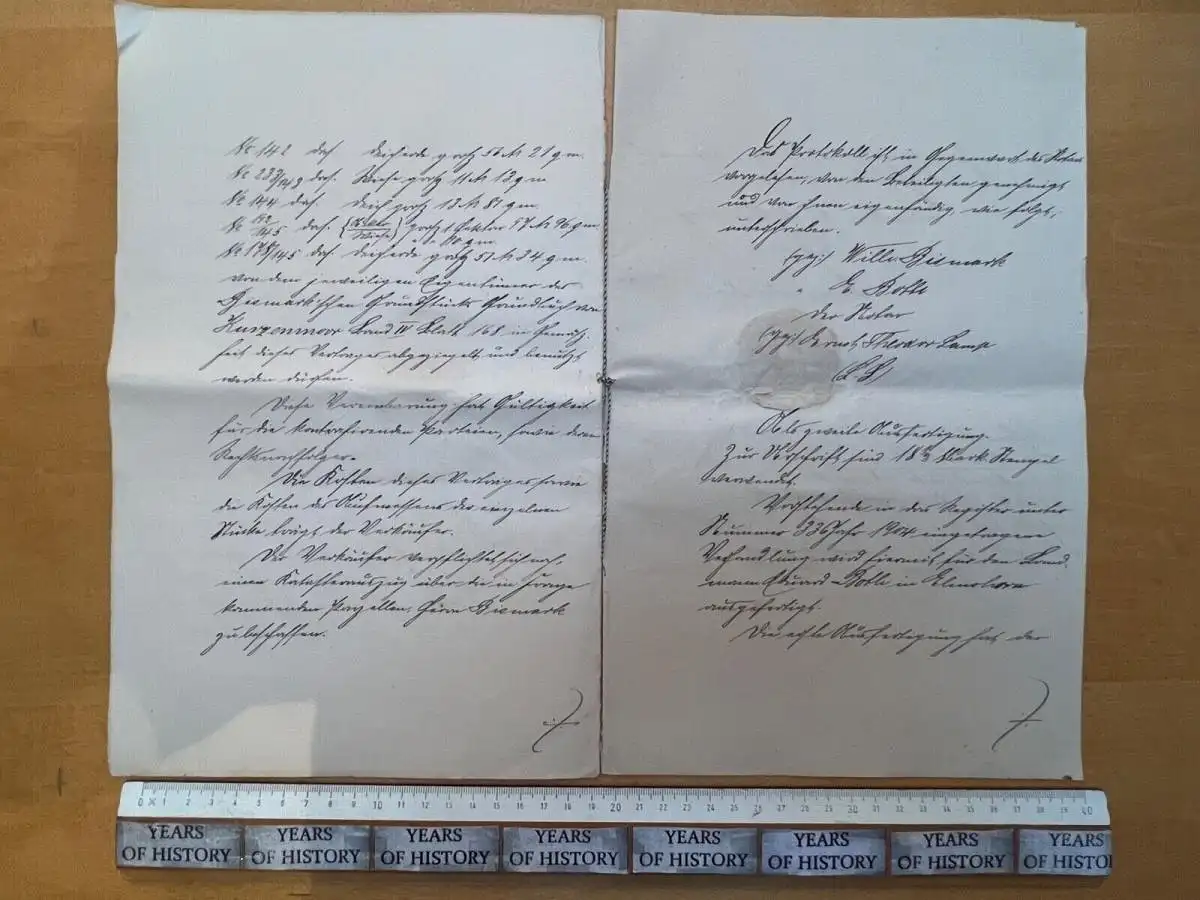 № 142 das. Deicherde groß 50 Ar 21 qm.
№ 233/143 das. Wiese groß 11 Ar 13 qm
№ 144 das. Deich groß 13 Ar 81 qm.
das. groß 1 Hektar 57 Ar 96 qm
Ar 10 qm
das. Deicherde groß 51 Ar 34 qm.
von dem jeweiligen Eigentümer des
Bismark'schen Grundstücks Grundbuch von
Kurzenmoor Band IV Blatt 168 in Gemäß-
heit dieses Vertrages abgeziegelt und benutzt
werden dürfen.
Diese Vereinbarung hat Gültigkeit
für die kontrahirenden Parteien, sowie deren
Rechtsnachfolger.
Die Kosten dieses Vertrages sowie
die Kosten des Aufmessens der einzelnen
Stücke trägt der Verkäufer.
Der Verkäufer verpflichtet sich noch,
einen Katasterauszug über die in Frage
kommenden Parzellen, Herrn Bismark
zu beschaffen.
Das Protokoll ist in Gegenwart des Notars
vorgelesen, von den Beteiligten genehmigt
und von ihnen eigenhändig, wie folgt,
unterschrieben.
(gez.) Bismark
" E. Bolte
Der Notar
(gez.) Ernst Theodor Lamp
(L.S)
Als zweite Ausfertigung.
Zur Urschrift sind Mark Stempel
verwendet.
Vorstehende in das Register unter
Nummer 336 Jahr 1904 eingetragene
Verhandlung wird hiermit für den Land-
mann Eduard Bolte in Elmshorn
ausgefertigt.
Die erste Ausfertigung hat der
0 1 2 3 4 5 6 7 8 9 10 11 12 13 14 15 16 17 18 19 20 21 22 23 24 25 26 27 28 29 30 31 32 33 34 35 36 37 38 39 40
YEARS OF HISTORY YEARS OF HISTORY YEARS OF HISTORY YEARS OF HISTORY YEARS OF HISTORY YEARS OF HISTORY YEARS OF HISTORY YEARS OF HISTO